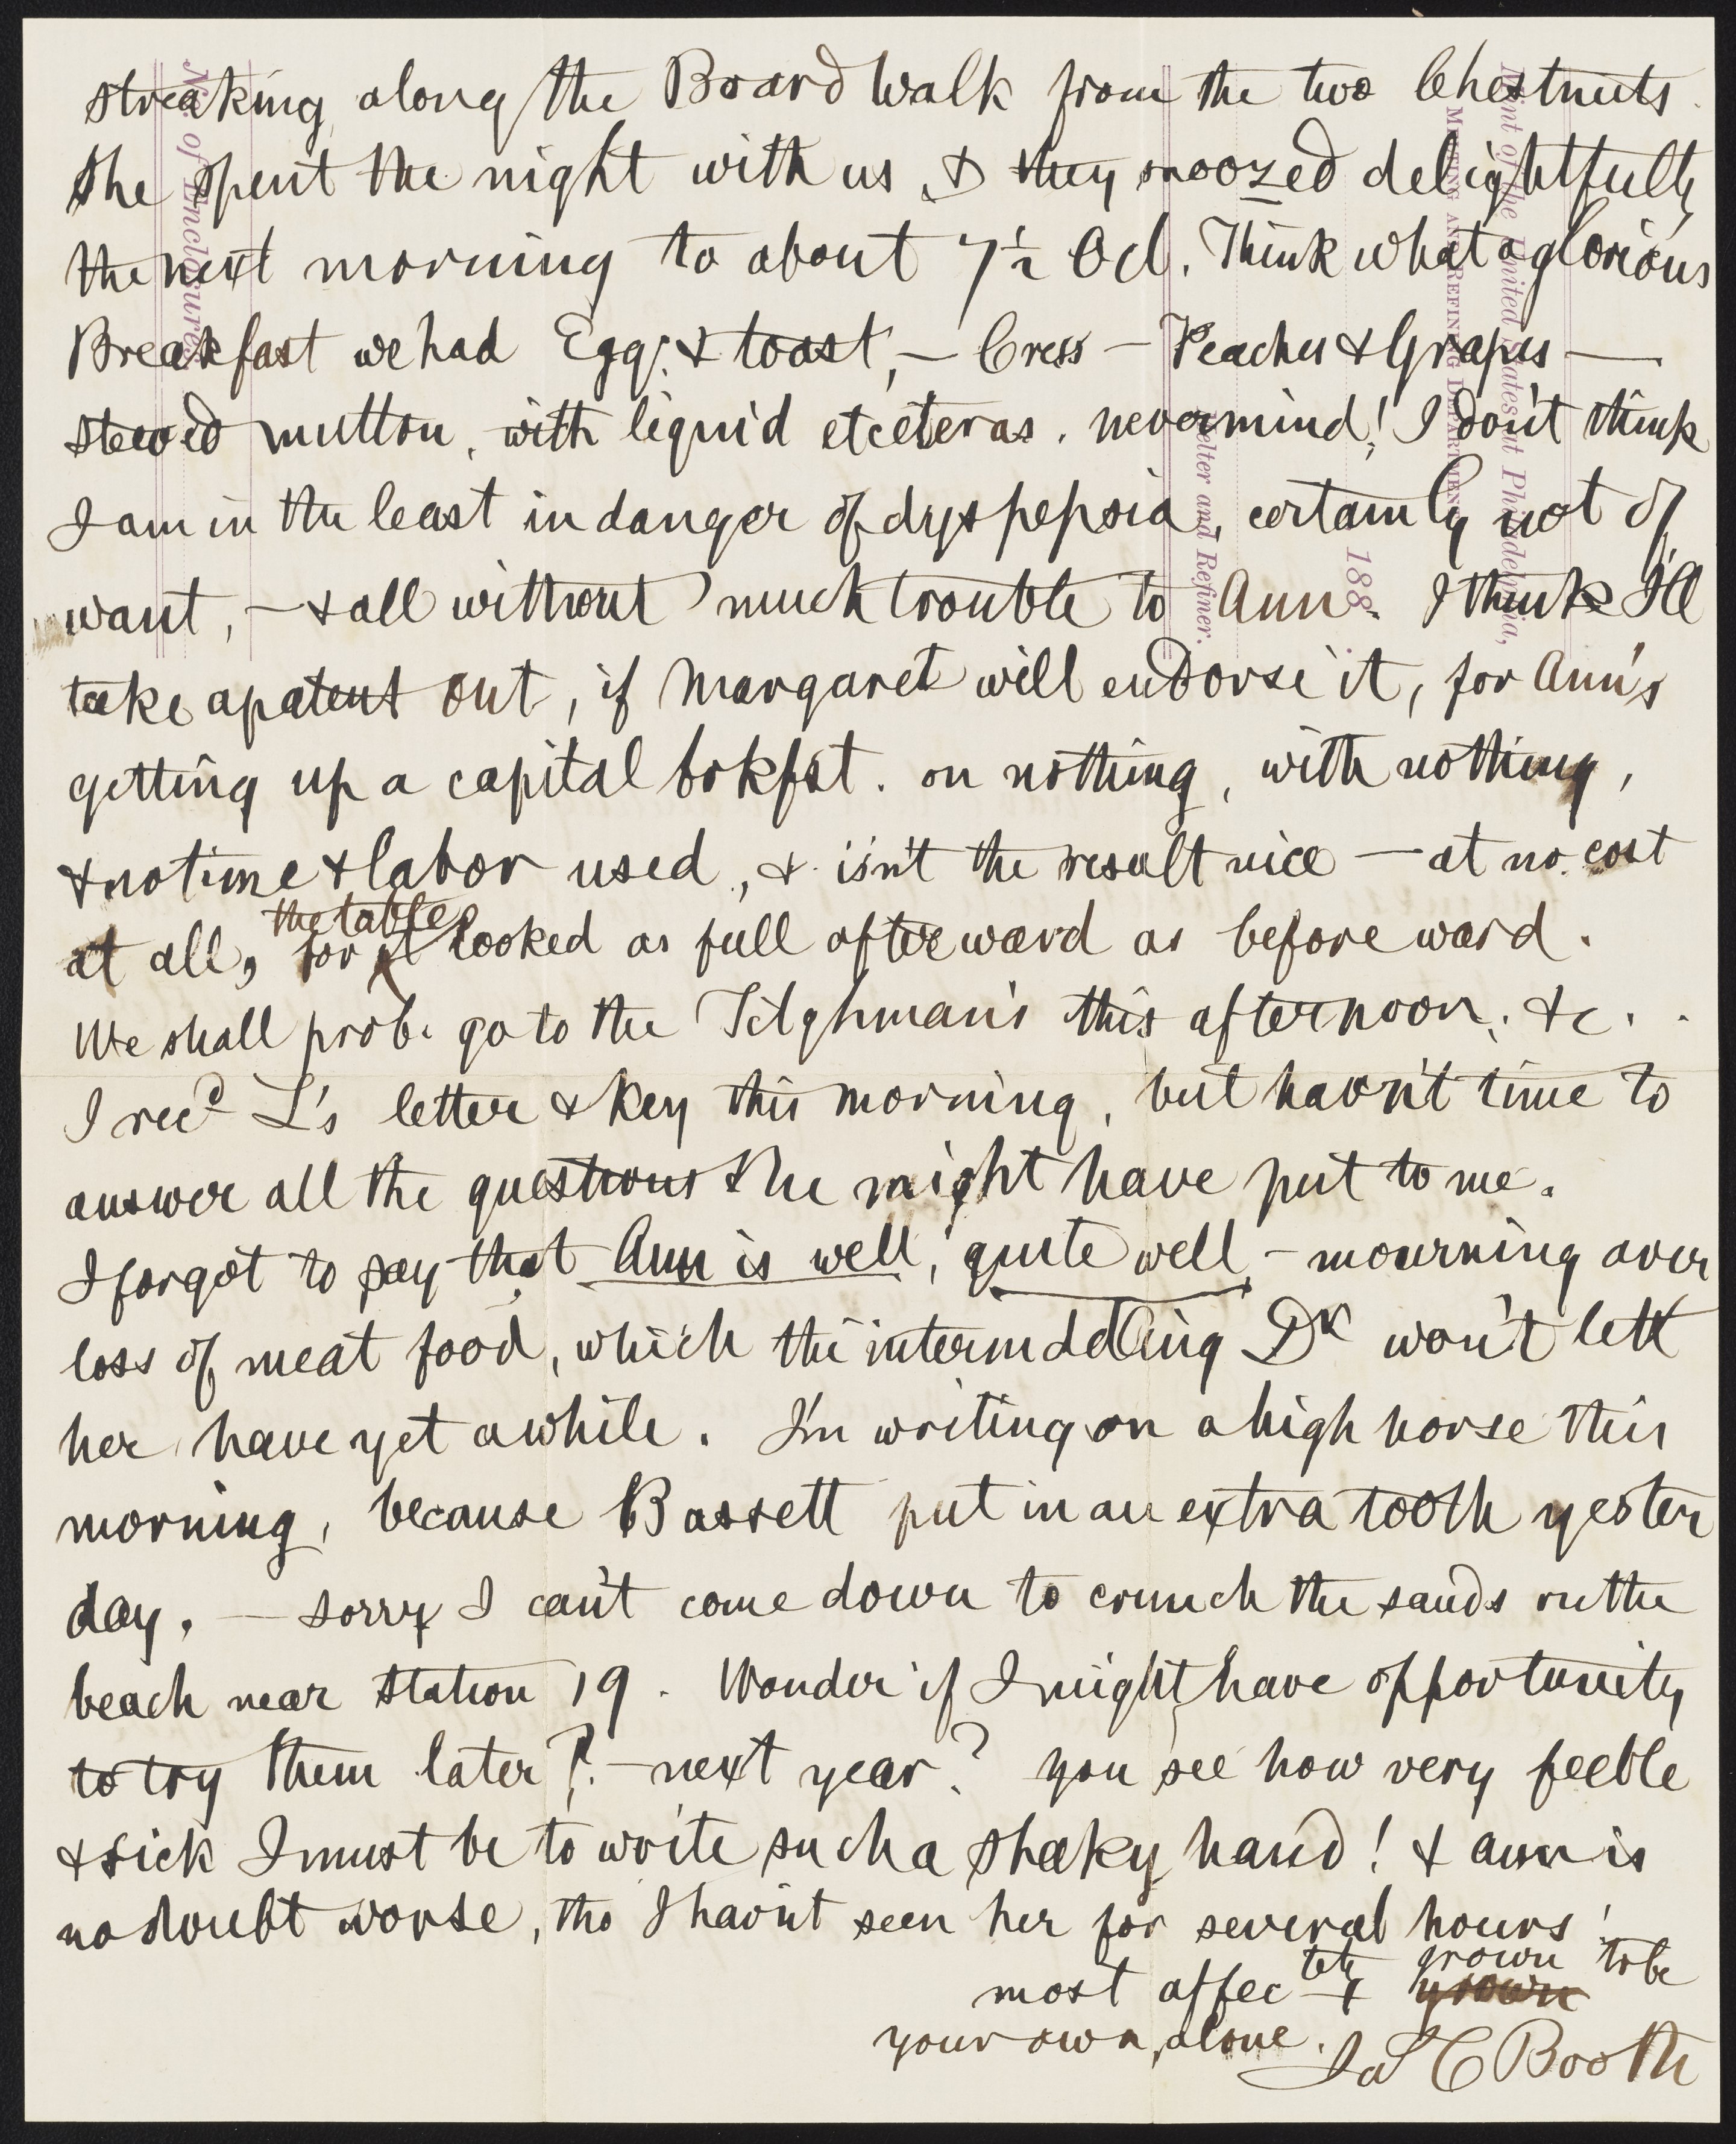 streaking along the Board Walk from the two Chestnuts.
She spent the night with us, & they snoozed delightfully
the next morning to about 7½ Ocl. Think what a glorious
Breakfast we had Eggs & toast, — Cress — Peaches & Grapes —
stewed mutton, with liquid etceteras. nevermind! I don't think
I am in the least in danger of dyspepsia, certainly not of
want, — & all without much trouble to Ann. I think I'll
take a patent out, if Margaret will endorse it, for Ann's
getting up a capital brkfst. on nothing, with nothing,
& no time & labor used, & isn't the result nice — at no cost
at all, for the table looked as full afterward as beforeward.
We shall prob. go to the Tilghman's this afternoon, &c. .
I recd L's letter & key this morning, but havn't time to
answer all the questions she might have put to me.
I forgot to say that Ann is well, quite well — mourning over
loss of meat food, which the intermddling Dr won't lett
her have yet awhile. I'm writing on a high horse this
morning, because Bassett put in an extra tooth yester
day. — Sorry I can't come down to crunch the sands on the
beach near Station 19. Wonder if I might have opportunity
to try them later? — next year? You see how very feeble
& sick I must be to write such a shaky hand! & Ann is
no doubt worse, tho I havn't seen her for several hours!
most affectely & grown to be
your own, alone. Jas C Booth
No. of Enclosures
Mint of the United States at Philadelphia,
MELTING AND REFINING DEPARTMENT
188
Melter and Refiner.